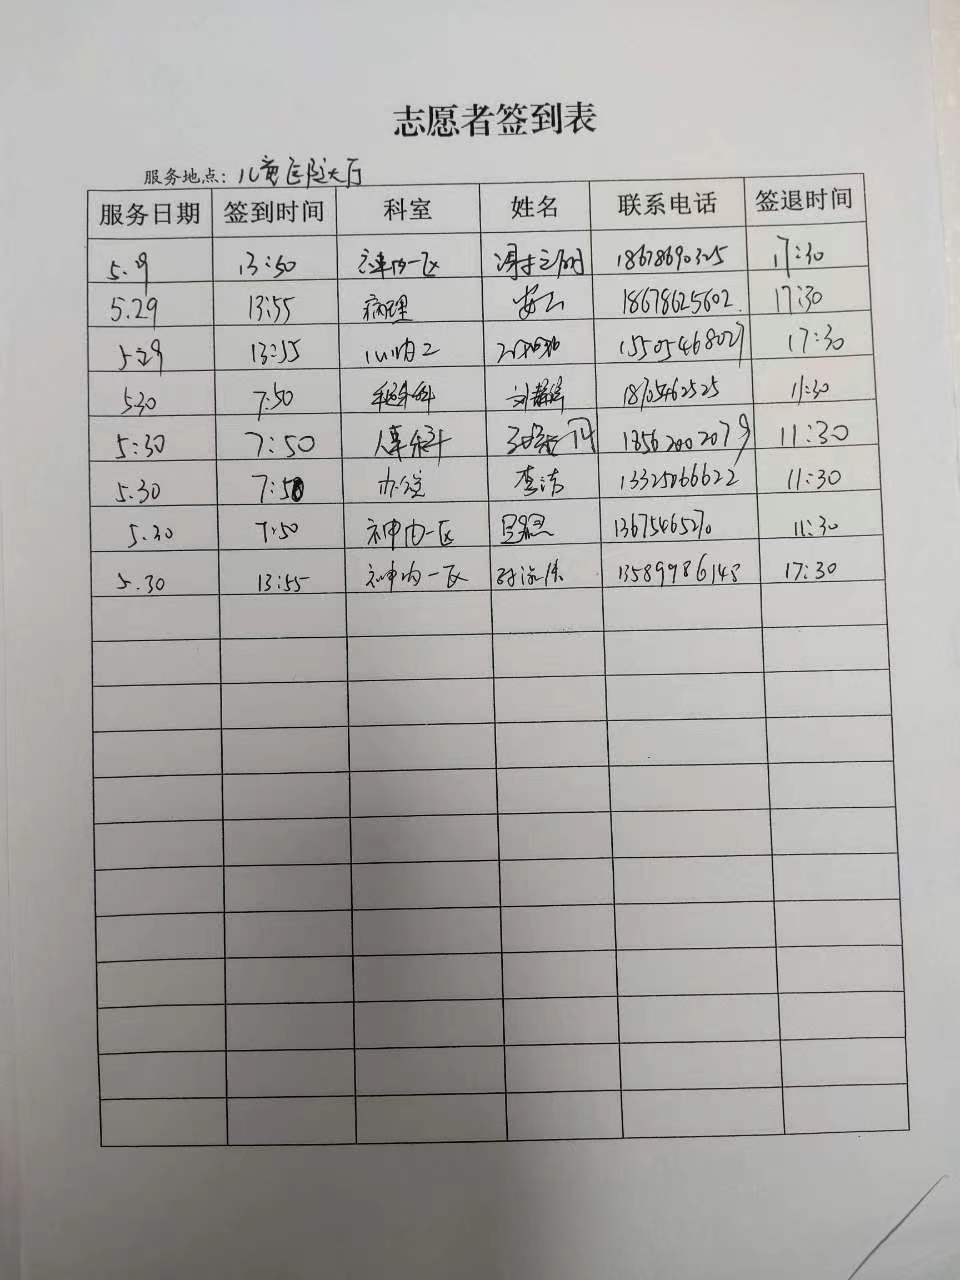 志愿者签到表
服务地点：儿童医院大厅
服务日期 签到时间 科室 姓名 联系电话 签退时间
5.9 13:50 神内一区 18678690325 17:30
5.29 13:55 病理 18678625602 17:30
5.29 13:55 心内2 15505468027 17:30
5.30 7:50 11:30
5:30 7:50 13562002079 11:30
5.30 7:50 办公室 李洁 13325066622 11:30
5.30 7:50 神内一区 13675465270 11:30
5.30 13:55 神内一区 13589986148 17:30